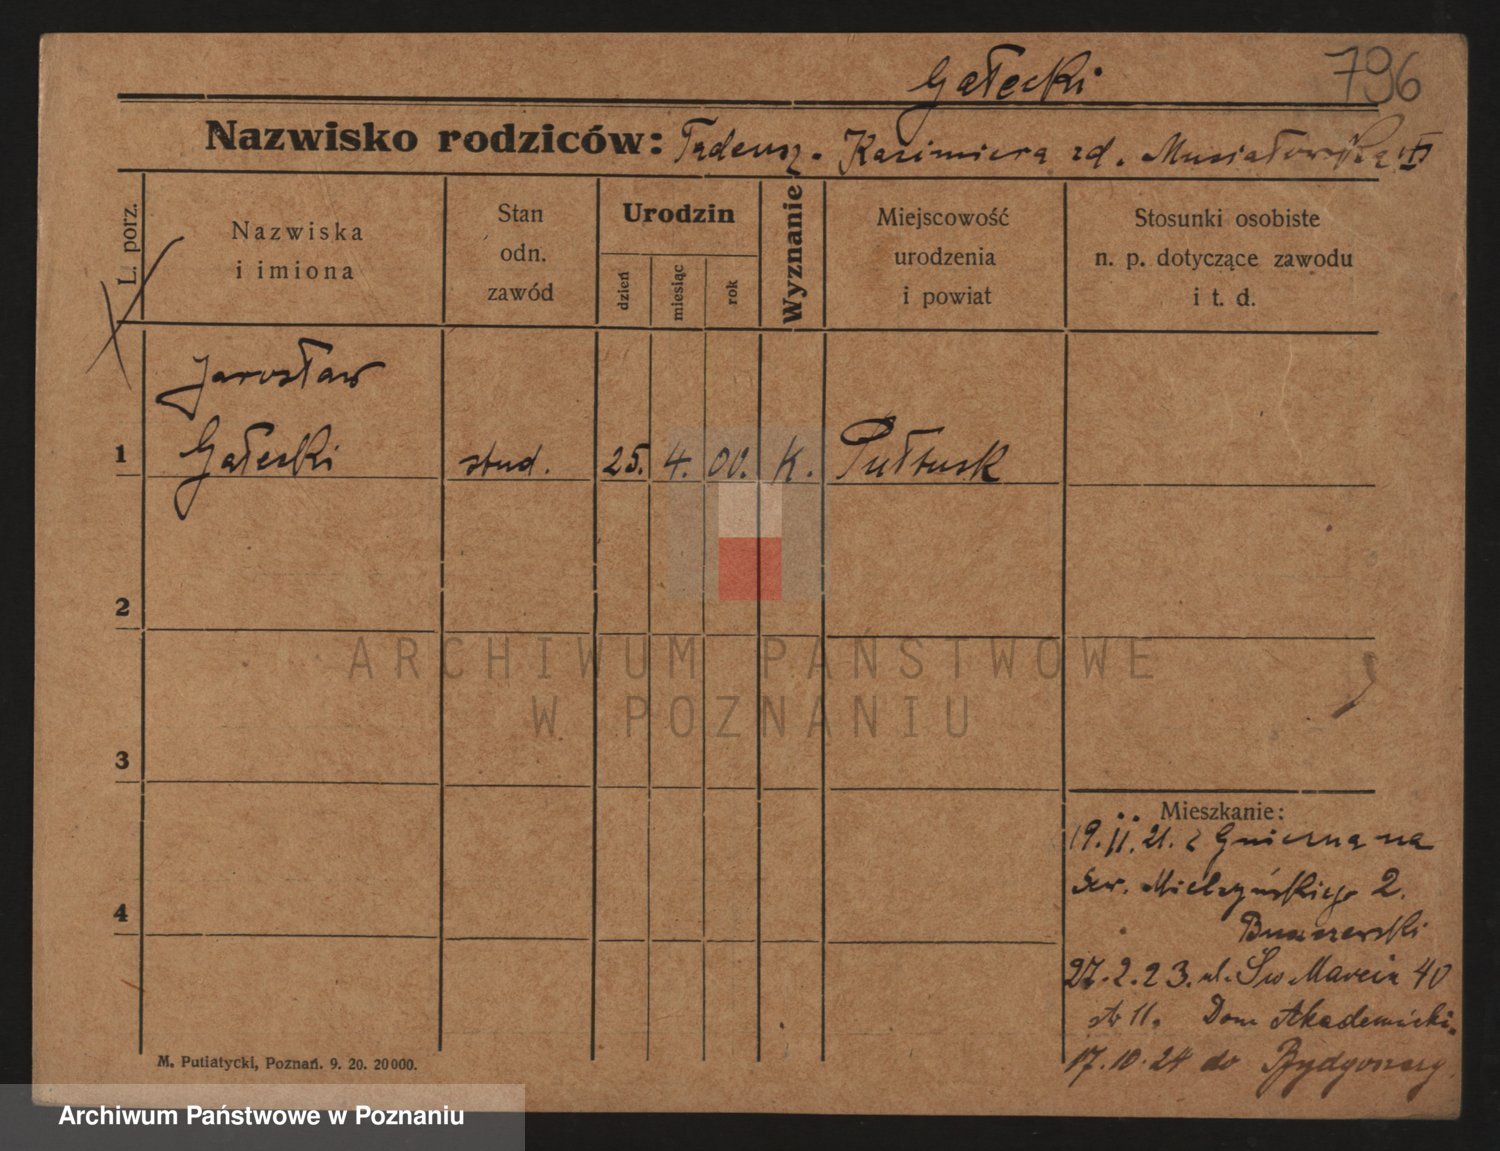 Gałecki
796
Nazwisko rodziców: Tadeusz - Kazimiera zd. Musiałowska
L. porz.
Nazwiska
i imiona
Stan
odn.
zawód
Urodzin
dzień
miesiąc
rok
Wyznanie
Miejscowość
urodzenia
i powiat
Stosunki osobiste
n. p. dotyczące zawodu
i t. d.
Jarosław
1 Gałecki stud. 25. 4. 00. K. Pułtusk
2
ARCHIWUM PAŃSTWOWE
W POZNANIU
3
Mieszkanie:
19.11.21. z Gniezna na
Sew. Mielzyńskiego 2.
4
27.2.23. ul. Św Marcin 40
str 11. Dom Akademicki.
17.10.24 do Bydgoszczy
M. Putiatycki, Poznań. 9. 20. 20000.
Archiwum Państwowe w Poznaniu